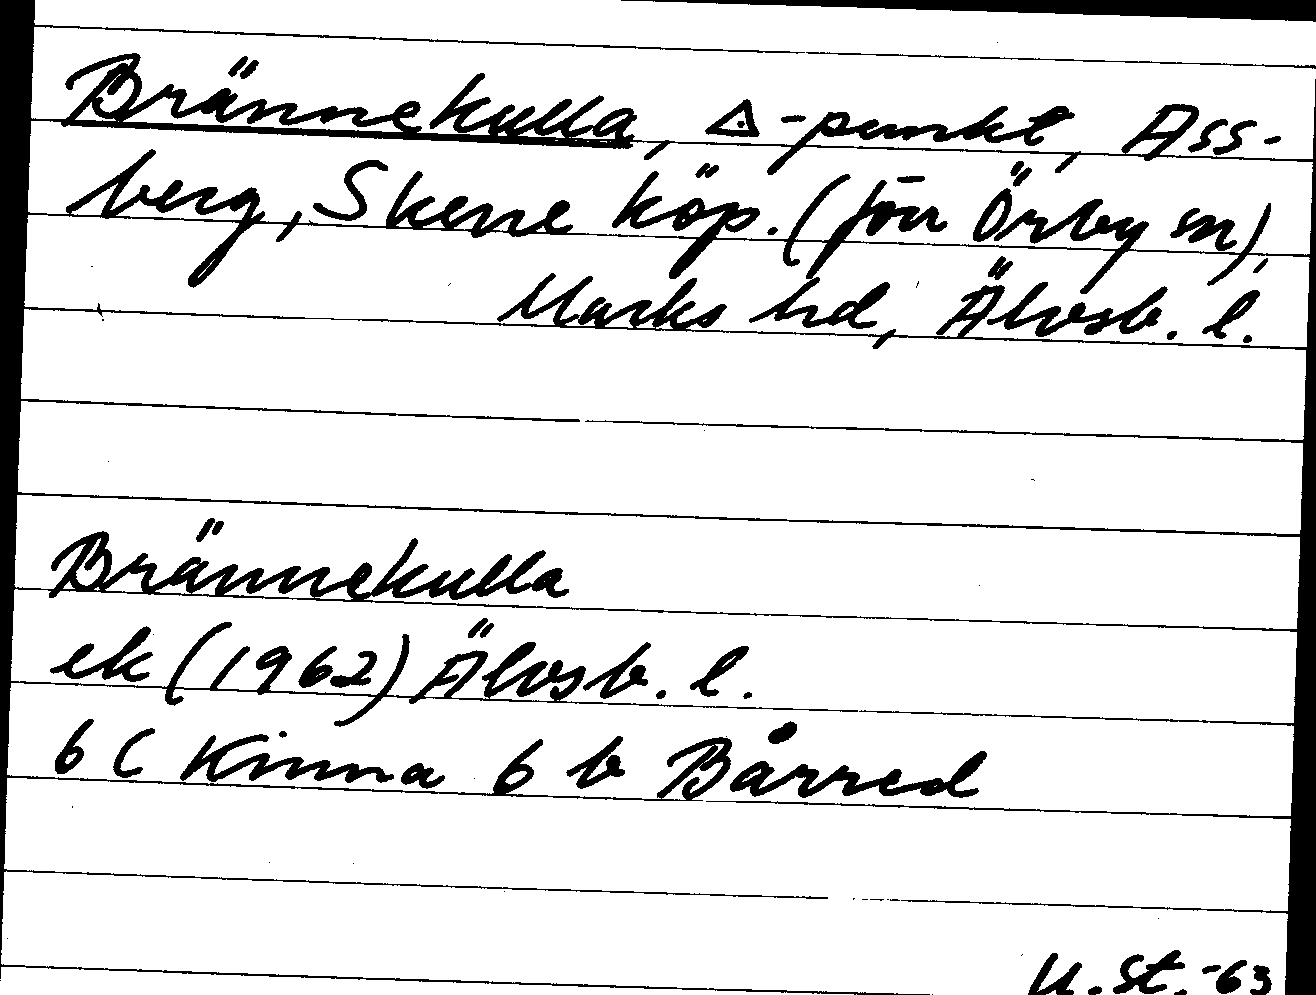 Brännekulla, ◬-punkt, Ass-
berg, Skene köp. (förr Örby sn),
Marks hd, Älvsb. l.
Brännekulla
ek (1962) Älvsb. l.
6 C Kinna 6 b Bårred
U.St.-63